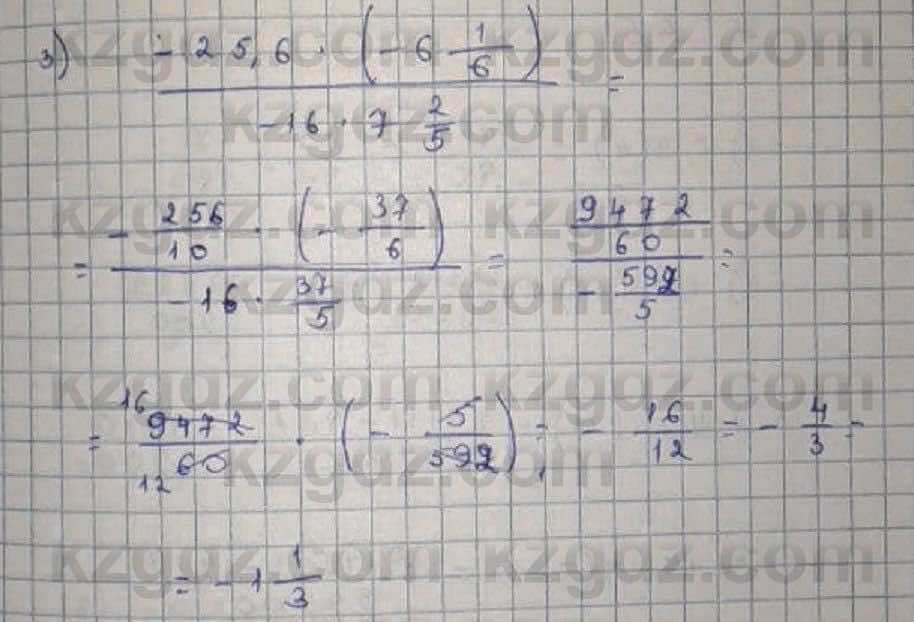 3) (-25,6 · (-6 1/6)) / (-16 · 7 2/5) =
= (-256/10 · (-37/6)) / (-16 · 37/5) = (9472/60) / (-592/5) =
= 16 9472/60 12 · (-5/592) = -16/12 = -4/3 =
= -1 1/3
kzgdz.com kzgdz.com
kzgdz.com
kzgdz.com kzgdz.com
kzgdz.com
kzgdz.com kzgdz.com
kzgdz.com
kzgdz.com kzgdz.com